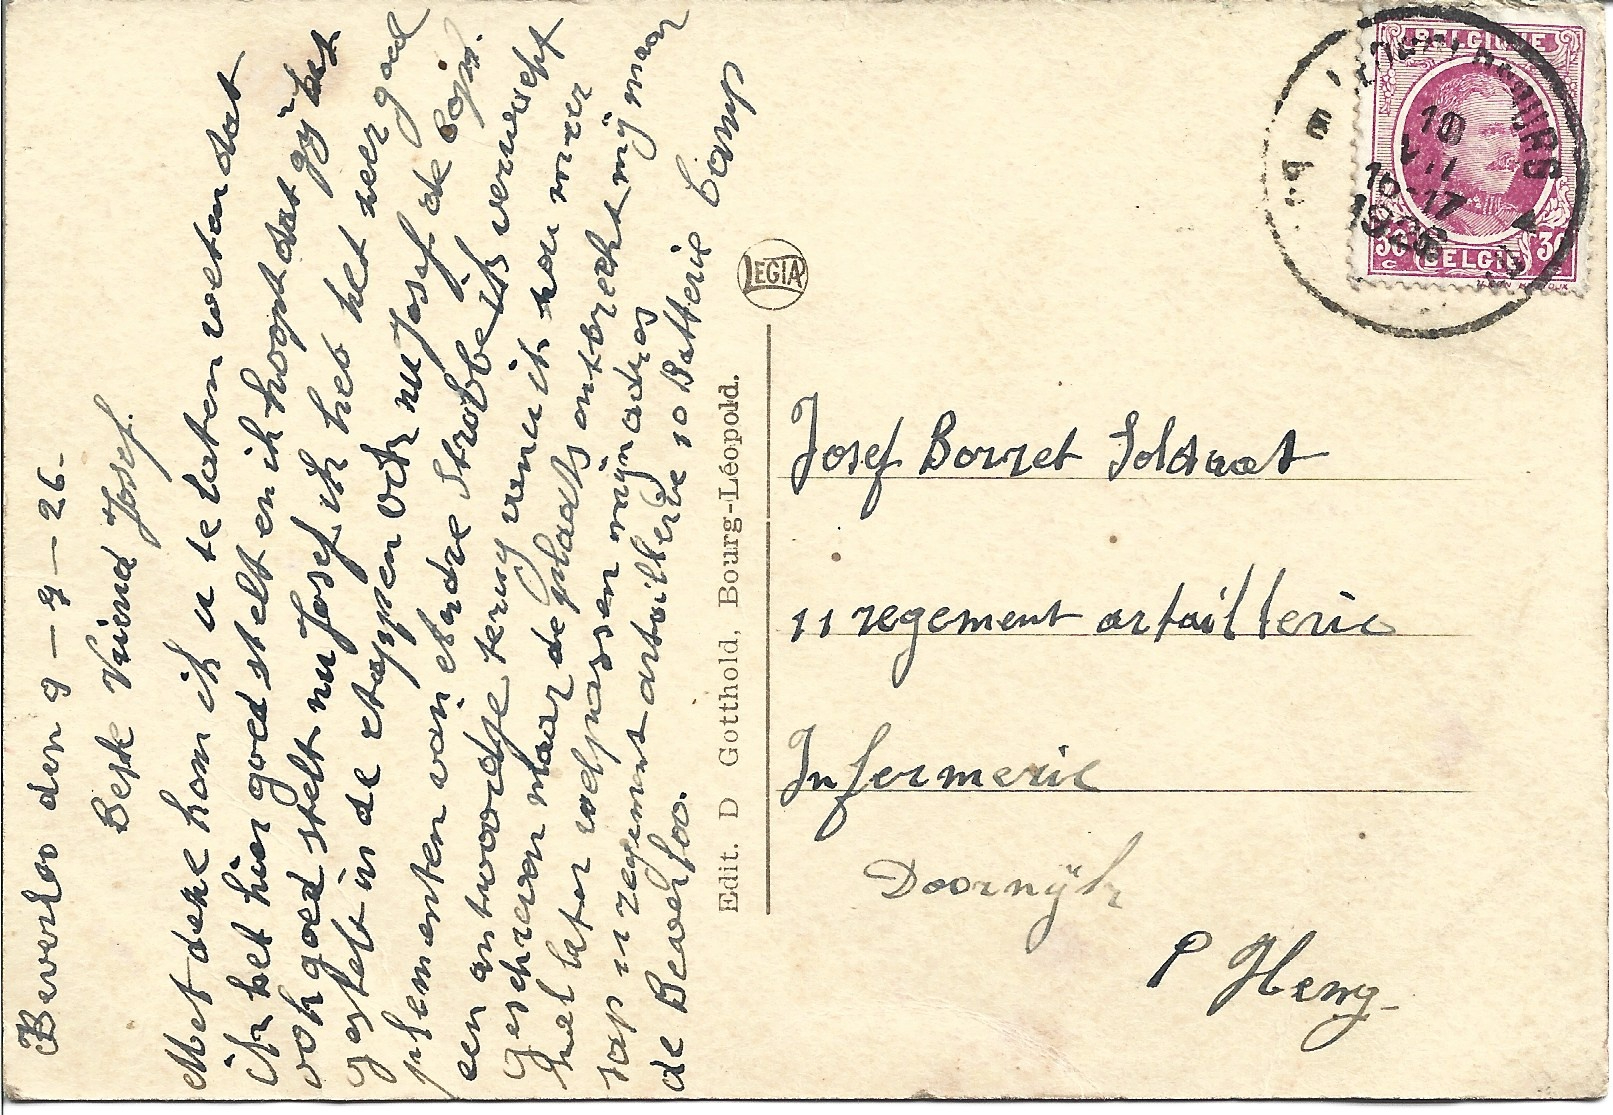 Beverloo den 9 - 9 - 26 -
Beste Vriend Josef.
Met deze kom ik u te laten weten dat
ik het hier goed stelt en ik hoopt dat gij het
ook goed stelt nu Josef ik heb het zeer goed
gestelt in de etappen ock nu Josef de
plementen van Strobbe ik verwacht
een antwoordje terug vriend ik zou meer
geschreven maar de plaats ontbrecht mij maar
het later mijn adres
11 regiment artillerie 10 Batterie Camp
de Beverloo.
Edit. D Gotthold, Bourg-Léopold.
LEGIA
BELGIQUE
30 c BELGIË 30 c
10
16-17
1926
Josef Borret Soldaat
11 regement artaillerie
Infermerie
Doornÿk
P Heng-